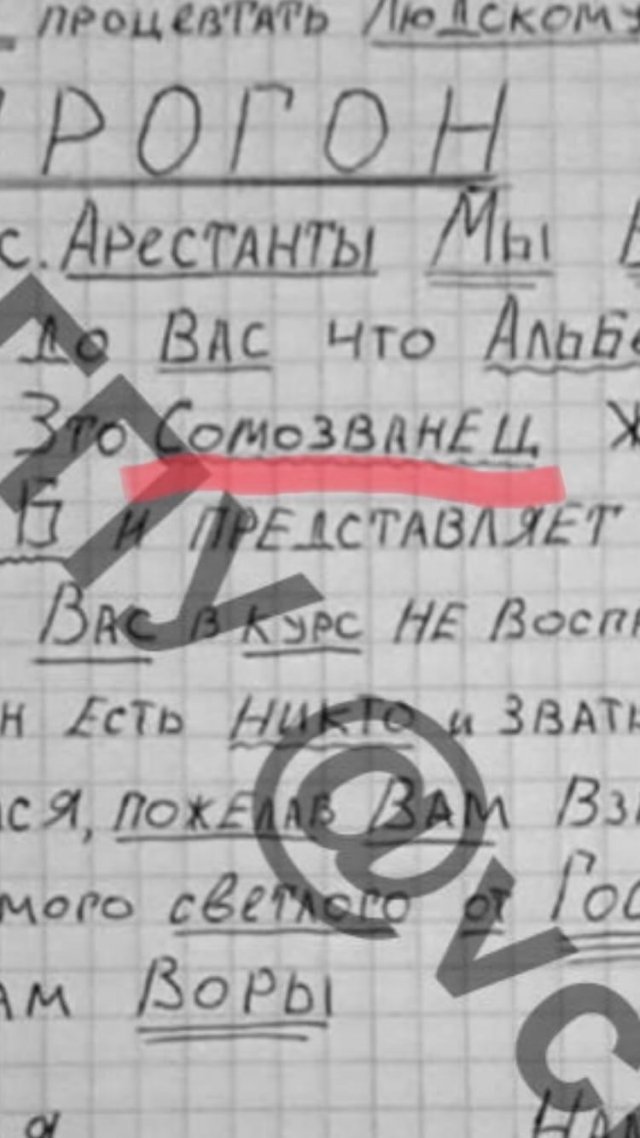 процевтать Людскому
РОГОН
с. Арестанты Мы
до Вас что
Это Сомозванец
Б и представляет
Вас в курс не
н Есть Никто и звать
ся, пожелав Вам
мого светлого от
ам Воры